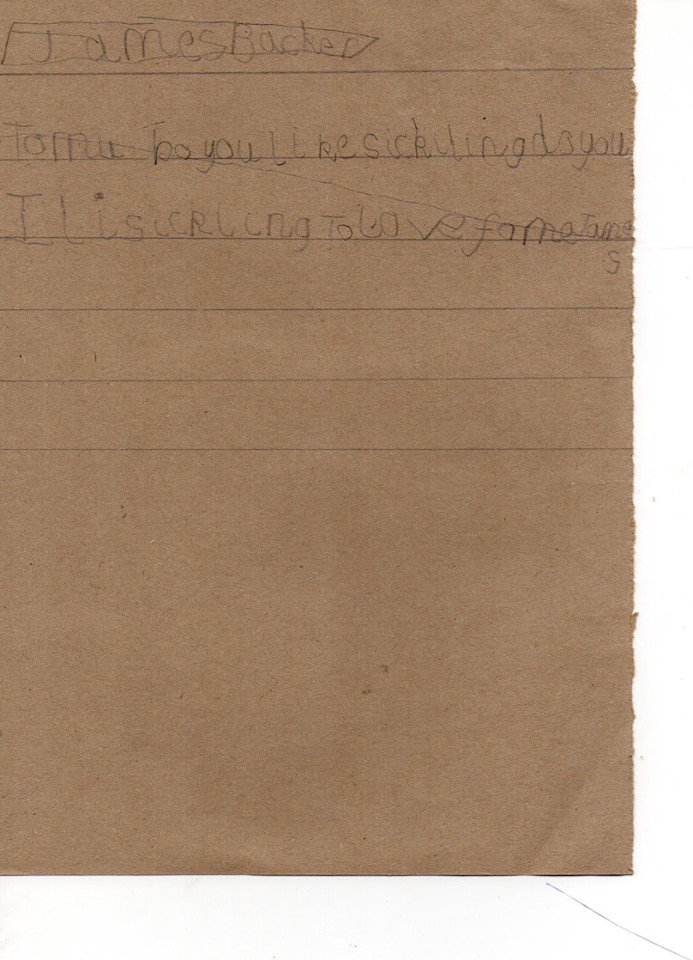 James Backer
To mu Do you like sickiling do you
I li sickling To love fome James